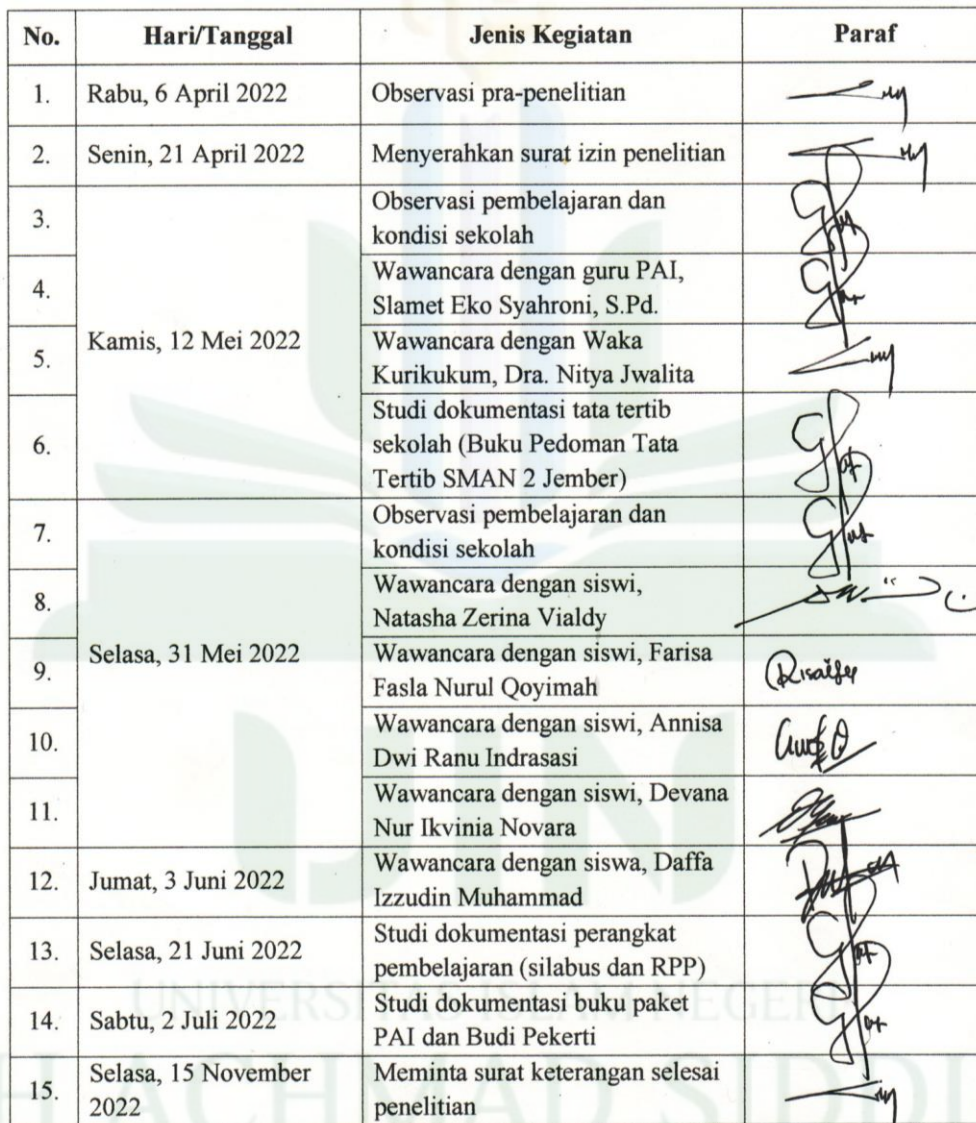 No. Hari/Tanggal Jenis Kegiatan Paraf
1. Rabu, 6 April 2022 Observasi pra-penelitian
2. Senin, 21 April 2022 Menyerahkan surat izin penelitian
3. Observasi pembelajaran dan
kondisi sekolah
4. Wawancara dengan guru PAI,
Slamet Eko Syahroni, S.Pd.
Kamis, 12 Mei 2022
5. Wawancara dengan Waka
Kurikukum, Dra. Nitya Jwalita
6. Studi dokumentasi tata tertib
sekolah (Buku Pedoman Tata
Tertib SMAN 2 Jember)
7. Observasi pembelajaran dan
kondisi sekolah
8. Wawancara dengan siswi,
Natasha Zerina Vialdy
Selasa, 31 Mei 2022
9. Wawancara dengan siswi, Farisa
Fasla Nurul Qoyimah
10. Wawancara dengan siswi, Annisa
Dwi Ranu Indrasasi
11. Wawancara dengan siswi, Devana
Nur Ikvinia Novara
12. Jumat, 3 Juni 2022 Wawancara dengan siswa, Daffa
Izzudin Muhammad
13. Selasa, 21 Juni 2022 Studi dokumentasi perangkat
pembelajaran (silabus dan RPP)
14. Sabtu, 2 Juli 2022 Studi dokumentasi buku paket
PAI dan Budi Pekerti
15. Selasa, 15 November
2022 Meminta surat keterangan selesai
penelitian
UIN
UNIVERSITAS ISLAM NEGERI
H ACHMAD SIDDI